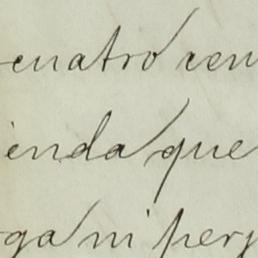 cuatro cen
enda que
ga ni perj